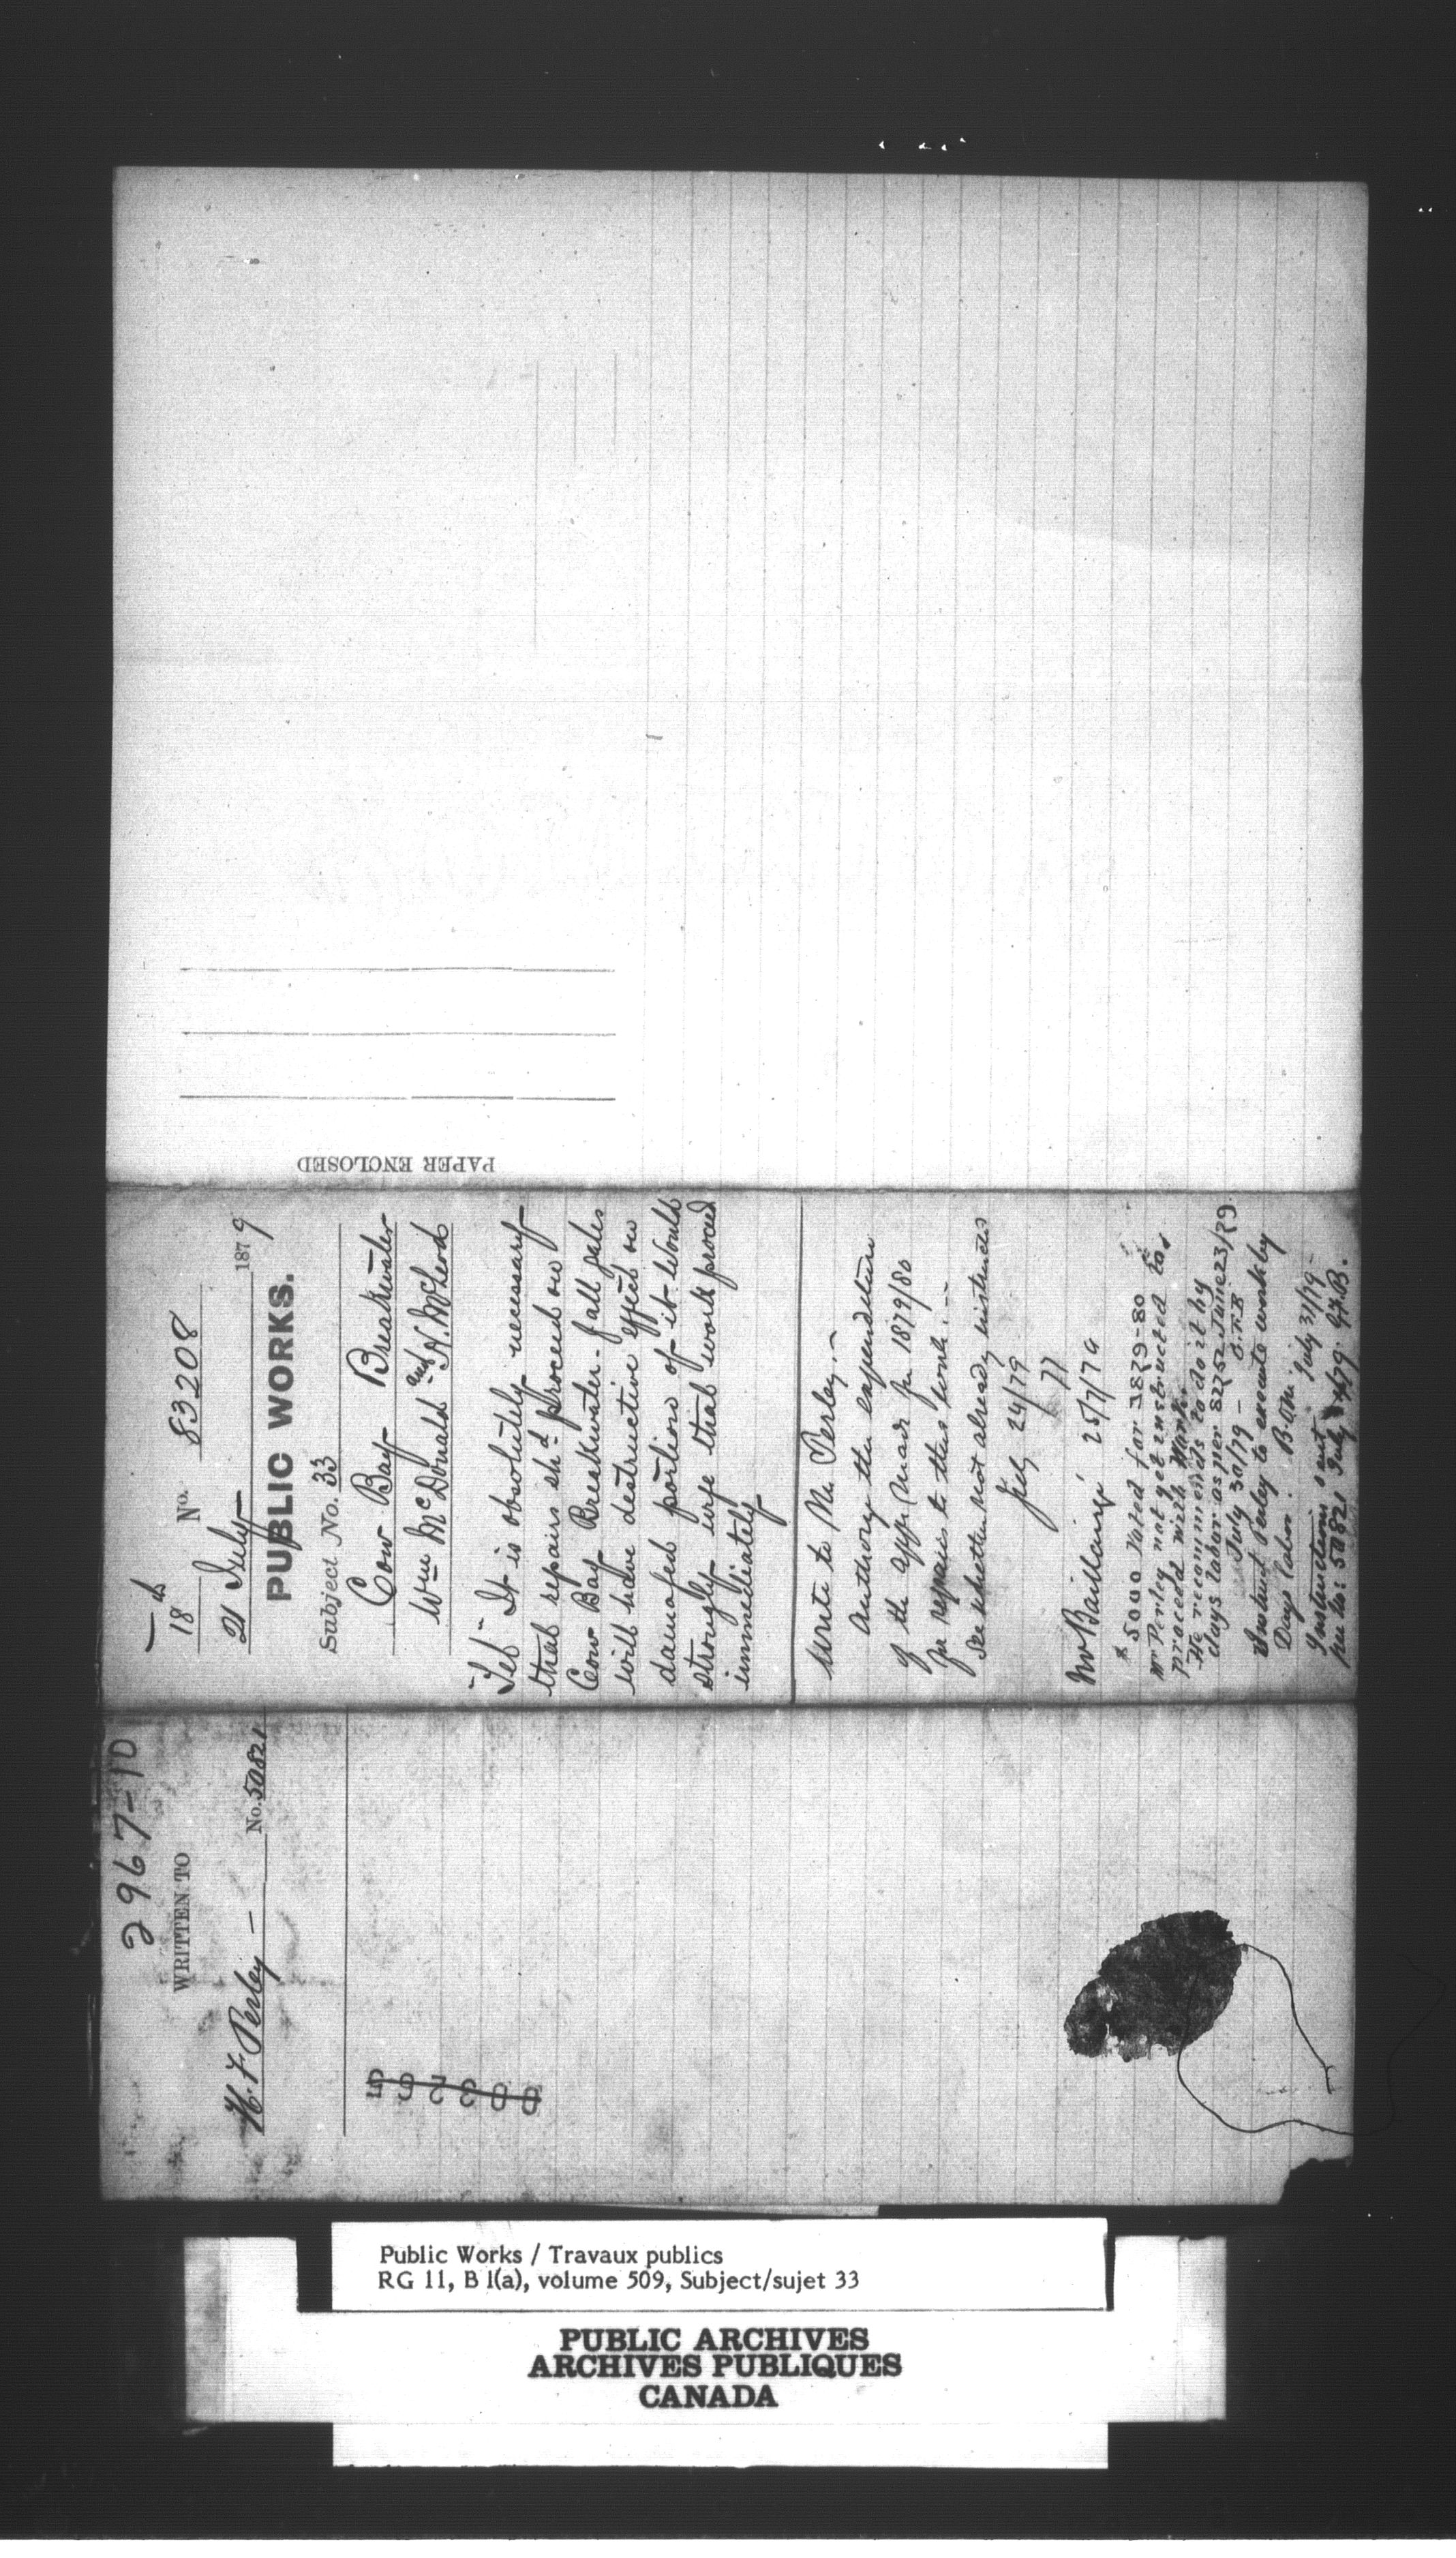 2967-10
WRITTEN TO
H. F. Perley — No. 50821
003265
18 No. 83208
21 July 1879
PUBLIC WORKS.
Subject No. 33
Cow Bay Breakwater
Wm McDonald and H. McLeod
"Tel" It is absolutely necessary
that repairs shd proceed on
Cow Bay Breakwater. fall gales
will have destructive effect on
damaged portion of it. Would
strongly urge that work proceed
immediately
Write to Mr Perley.—
Authorize the expenditure
of the appn made for 1879/80
for repairs to this work...
See whether not already instructed
July 24/79
Mr Baillairgé 25/7/79
$5000 Voted for 1879-80
Mr Perley not yet instructed to
proceed with Work.
He recommends to do it by
days labor as per 82252 June 23/79
July 30/79 —
Instruct Perley to execute work by
Days labor. July 31/79 —
Instructions sent
per No: 50821 July /79. G.F.B.
PAPER ENCLOSED
Public Works / Travaux publics
RG 11, B 1(a), volume 509, Subject/sujet 33
PUBLIC ARCHIVES
ARCHIVES PUBLIQUES
CANADA